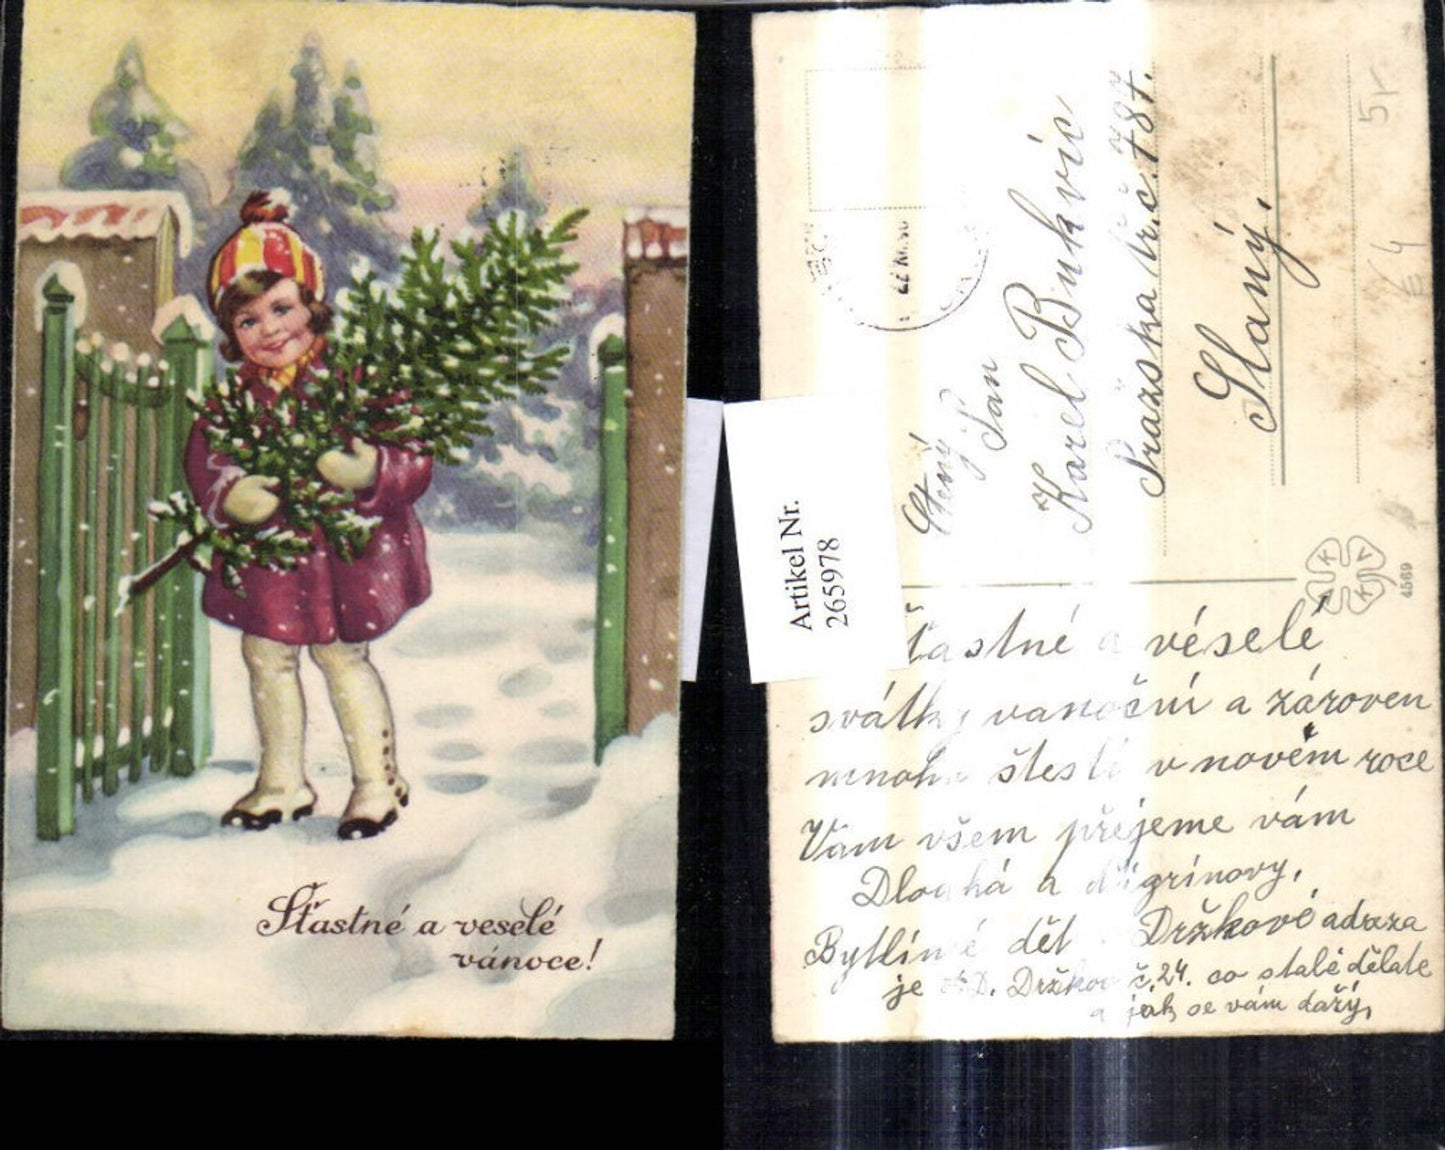 Šťastné a veselé
vánoce!
Artikel Nr.
265978
Ctěný
Pan
Karel Bukvic
Pražská tř. č. 787.
Slaný.
5r
4569
šťastné a véselé
svátky vanoční a zároven
mnoho štestí v novém roce
Vám všem přejeme vám
Dlouhá a
Držkové adraza
je Držkov č. 24. co stalé dělate
a jak se vám daří,